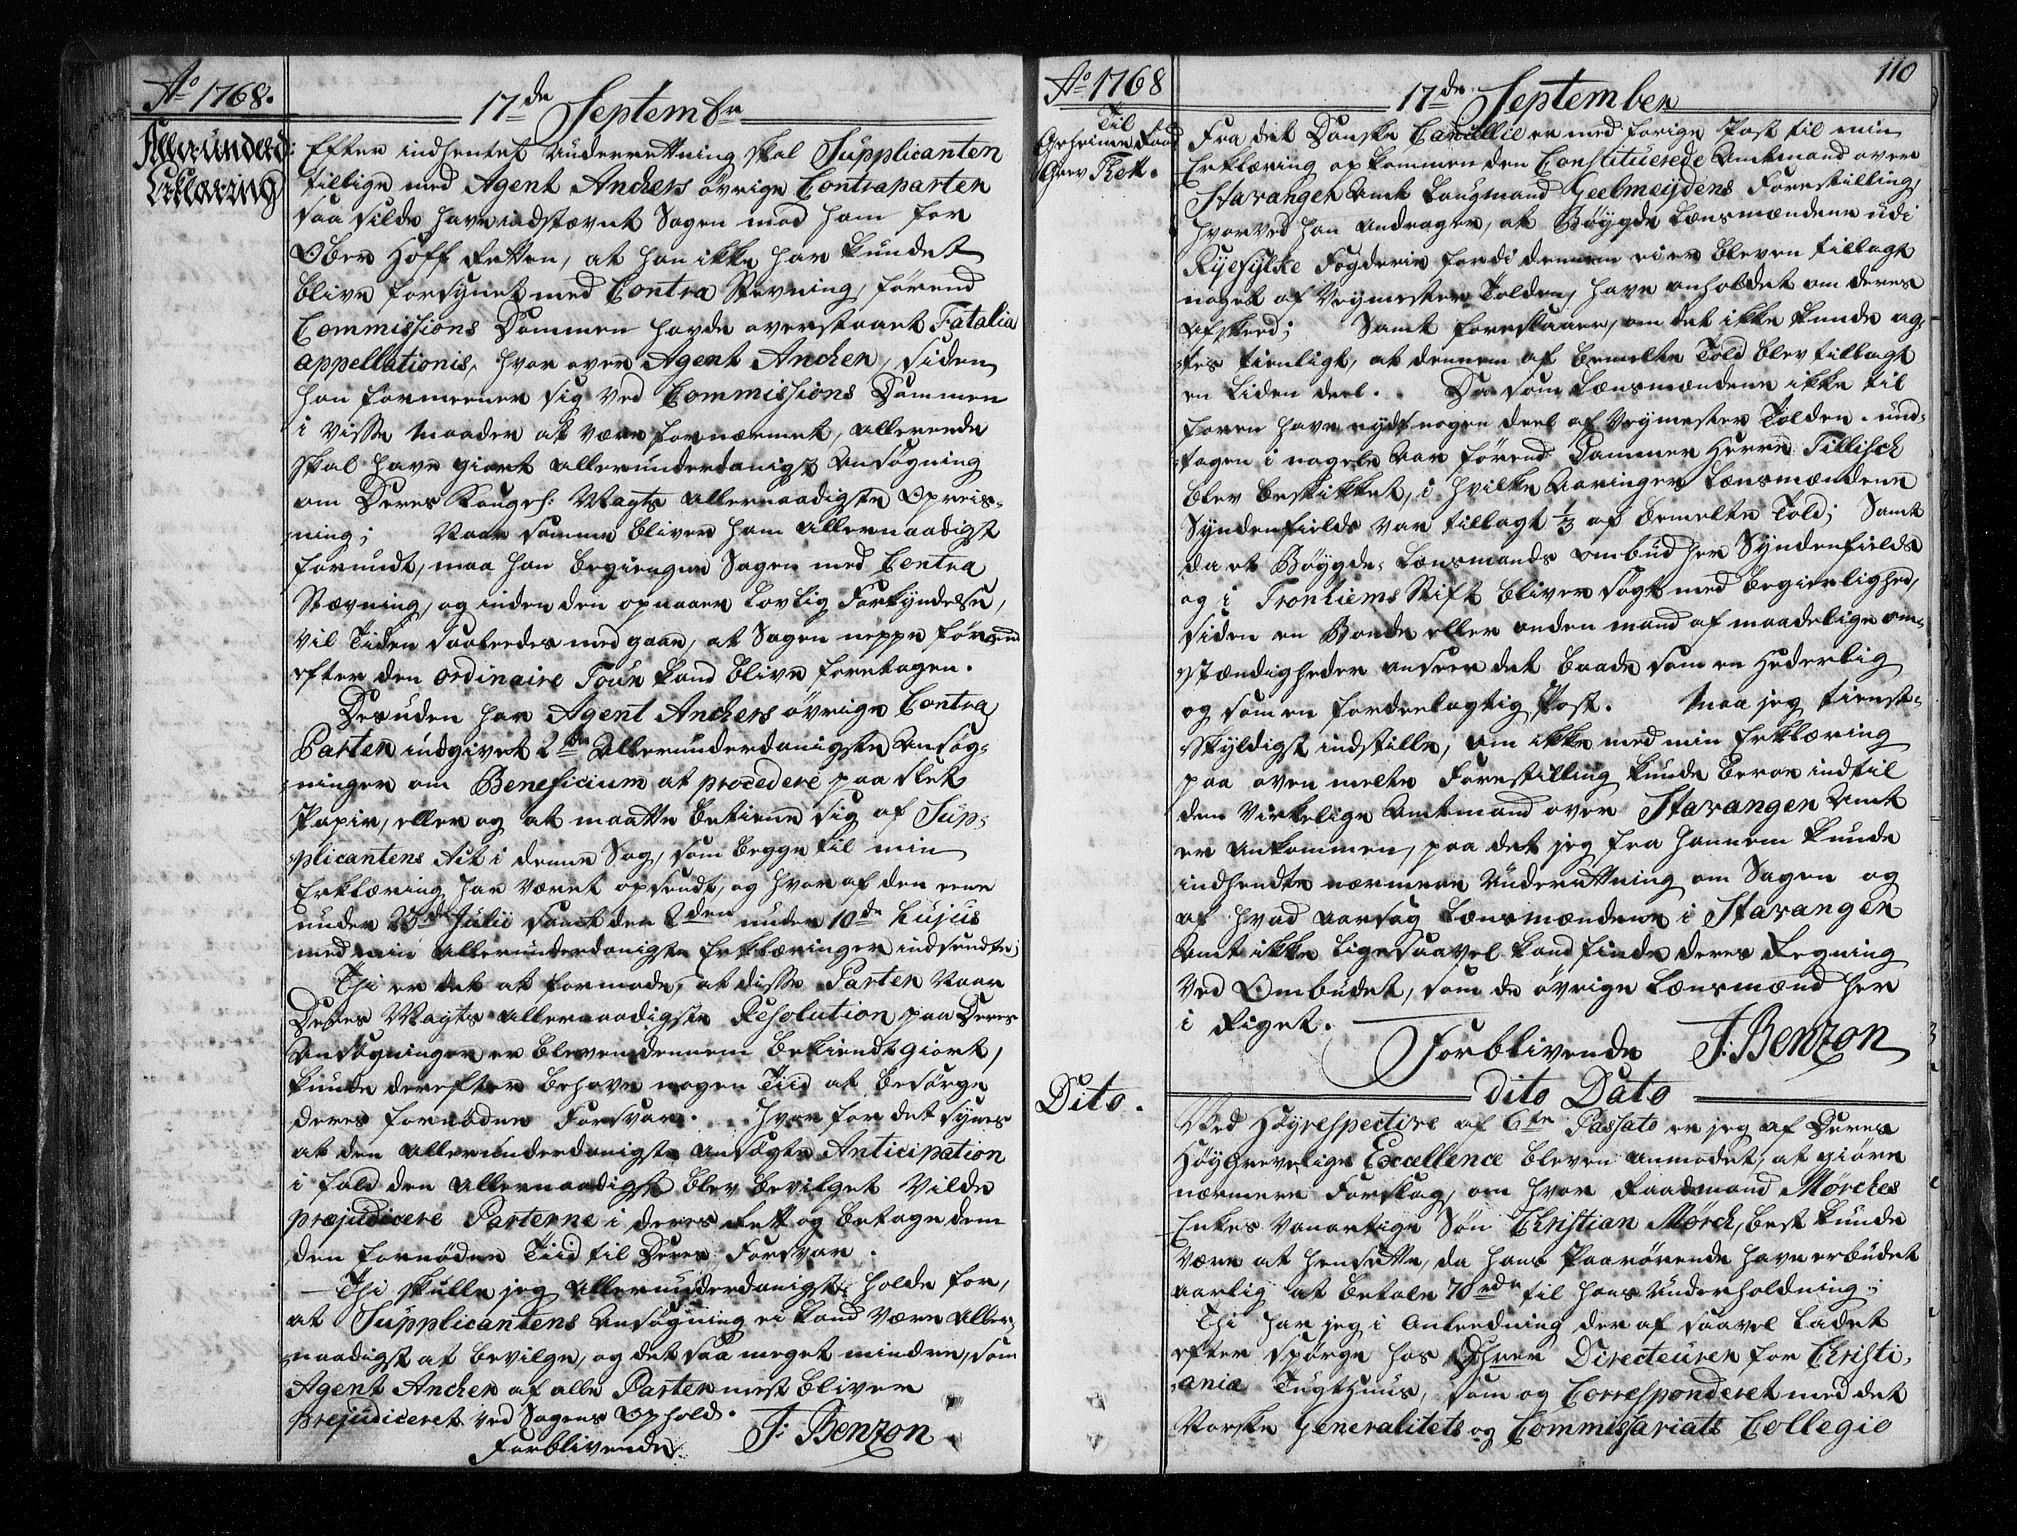 Ao 1768.
17de Septembr
Allerunderd:
Erklæring
Efter indhentet Underretning skal Supplicanten
tillige med Agent Anchers øvrige Contraparter
saa silde have indstævnt Sagen mod ham for
Ober Hoff Retten, at han ikke har kundet
blive forsynet med Contra Stevning, førend
Commissions Dommen havde overstaaet Fatalia
appellationis, hvor over Agent Ancher, siden
han formeener sig ved Commissions Dommen
i visse Maader at være fornærmet, allerede
skal have giort allerunderdanigst Ansøgning
om Deres Kongel: Mayts allernaadigste Opreis-
ning; Naar samme bliver ham allernaadigst
forundt, maa han begiengne Sagen med Contra
Stævning, og inden den opnaaer lovlig Forkyndelse,
vil Tiden saaledes medgaae, at Sagen neppe førend
efter den ordinaire Tour kand blive foretagen.
Desuden har Agent Anchers øvrige Contra
Parter indgivet 2de Allerunderdanigste Ansøg-
ninger om Beneficium at procedere paa slet
Papir, eller og at maatte betiene sig af Sup-
plicantens Act i denne Sag, som begge til min
Erklæring har været opsendt, og hvor af den eene
under 23de Julii samt den 2den under 10de hujus
med min allerunderdanigste Erklæringer indsendte;
Thi er det at formode, at disse Parter Naar
Deres Mayts allernaadigste Resolution paa Deres
Ansøgninger er bleven dennem bekiendtgiort,
kunde derefter behøve nogen Tiid at besørge
deres fornødne Forsvar. Hvor for det synes
at den allerunderdanigst ansøgte Anticipation
i fald den allernaadigst blev bevilget vilde
præjudicere Parterne i deres Ret og betage dem
den fornødne Tiid til Deres Forsvar.
Thi skulle jeg allerunderdanigst holde for,
at Supplicantens Ansøgning ei kand være aller-
naadigst at bevilge, og det saa meget mindre, som
Agent Ancher af alle Parter mest bliver
prejudiceret ved Sagens Ophold.
Forblivende J: Benzon
Ao 1768
17de September
110
Til
Geheime Raad
Grev Thott.
Fra det Danske Cancellie er med forige Post til min
Erklæring opkommen den Constituerede Amtmand over
Stavanger Amt Laugmand Geelmeydens Forestilling,
hvorved han andrager, at Bøygde Lænsmændene udi
Ryefylke Fogderie fordi dennem ei er bleven tillagt
noget af Veymester Tolden, have anholdet om deres
Afskeed; Samt forestaaer, om det ikke kunde ag-
tes tienligt, at dennem af bemelte Told blev tillagt
en liden deel. Da som Lænsmændene ikke til
foren have nydt nogen deel af Veymester Tolden. und-
tagen i nogele Aar førend Cammer Herre Tillisch
blev beskikket, i hvilke Aaringer Lænsmændene
Syndenfields var tillagt 1/3 af bemelte Told; Samt
da et Bøygde-Lænsmands ombud her Syndenfields
og i Tronhiems Stift bliver søgt med begierlighed,
siden en Bonde eller anden mand af maadelige om-
stændigheder anseer det baade som en hederlig
og som en fordeelagtig Post. Maa jeg tienst-
skyldigst indstille, om ikke med min Erklæring
paa oven melte Forestilling kunde beroe indtil
den virkelige Amtmand over Stavanger Amt
er ankommen, paa det jeg fra hannem kunde
indhendte nærmere Underretning om Sagen og
af hvad aarsag Lænsmændene i Stavanger
Amt ikke ligesaavel kand finde deres Regning
ved Ombudet, som de øvrige Lænsmænd her
i Riget.
Forblivende J: Benzon
dito Dato
Dito.
Med Høyrespective af 6te Passato er jeg af Deres
HøyGrevelige Excellence bleven anmodet, at giøre
nærmere Forslag, om hvor Raadmand Mørches
Enkes vanartige Søn Christian Mørch, best kunde
være at hensette, da hans Paarørende have erbudet
aarlig at betale 70 rdr til hans Underholdning;
Thi har jeg i Anledning der af saavel ladet
efter spørge hos Dhrer Directeurer for Christi-
aniæ Tugthuus, som og Corresponderet med det
Norske Generalitets og Commissariats Collegio